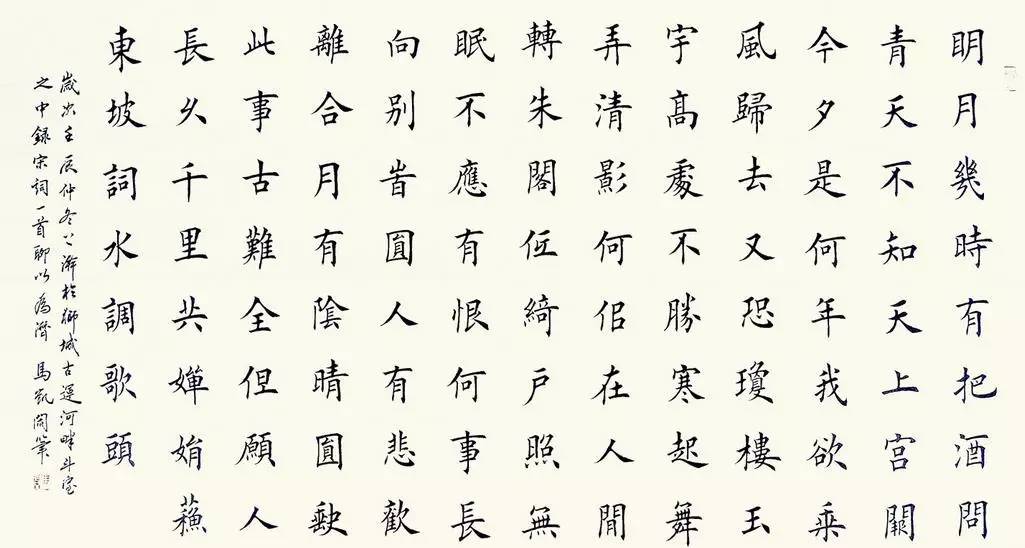 明月幾時有把酒問
青天不知天上宮闕
今夕是何年我欲乘
風歸去又恐瓊樓玉
宇高處不勝寒起舞
弄清影何佀在人間
轉朱閣低綺戶照無
眠不應有恨何事長
向别旹圓人有悲歡
離合月有陰晴圓缺
此事古難全但願人
長久千里共嬋娟蘓
東坡詞水調歌頭
歲次壬辰仲冬上澣於城古運河畔斗室
之中錄宋詞一首聊以為 馬凱